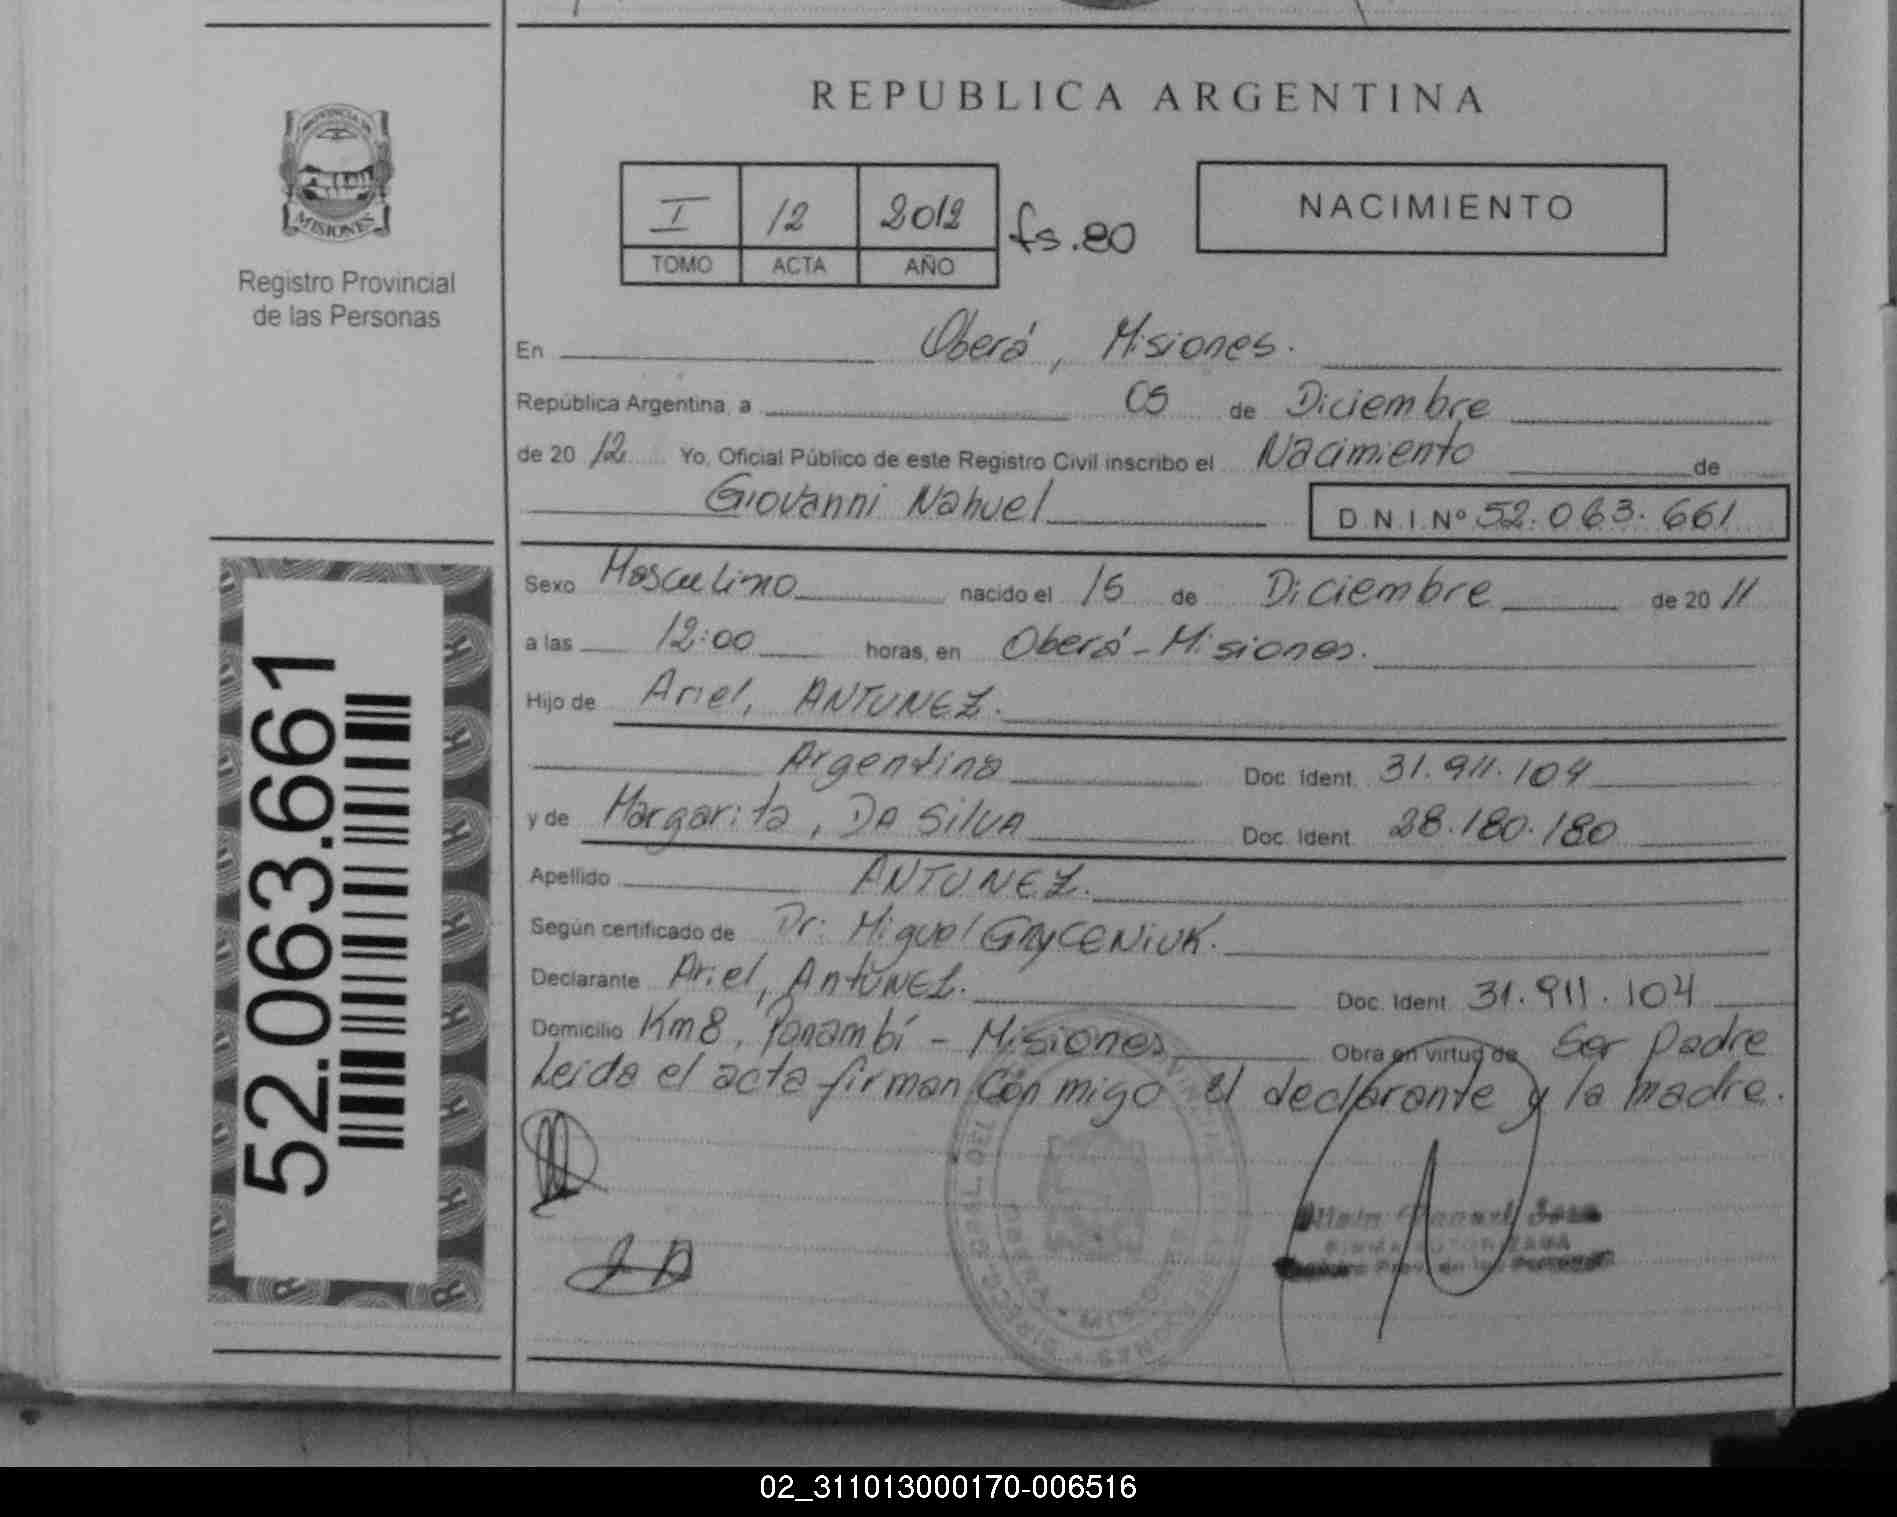 REPUBLICA ARGENTINA
PROVINCIA DE
MISIONES
Registro Provincial
de las Personas
I 12 2012 fs. 80
TOMO ACTA AÑO
NACIMIENTO
En Oberá, Misiones.
República Argentina, a 05 de Diciembre
de 20 12 Yo, Oficial Público de este Registro Civil inscribo el Nacimiento de
Giovanni Nahuel D.N.I. Nº 52.063.661
Sexo Masculino nacido el 15 de Diciembre de 20 11
a las 12:00 horas, en Oberá - Misiones.
Hijo de Ariel, ANTUNEZ.
Argentina Doc. Ident. 31.911.104
y de Margarita, DA SILVA Doc. Ident. 28.180.180
Apellido ANTUNEZ.
Según certificado de Dr: Miguel GRYCENIUK.
Declarante Ariel, ANTUNEZ. Doc. Ident. 31.911.104
Domicilio Km8, Panambí - Misiones Obra en virtud de Ser Padre
Leida el acta firman conmigo el declarante y la madre.
52.063.661
02_311013000170-006516